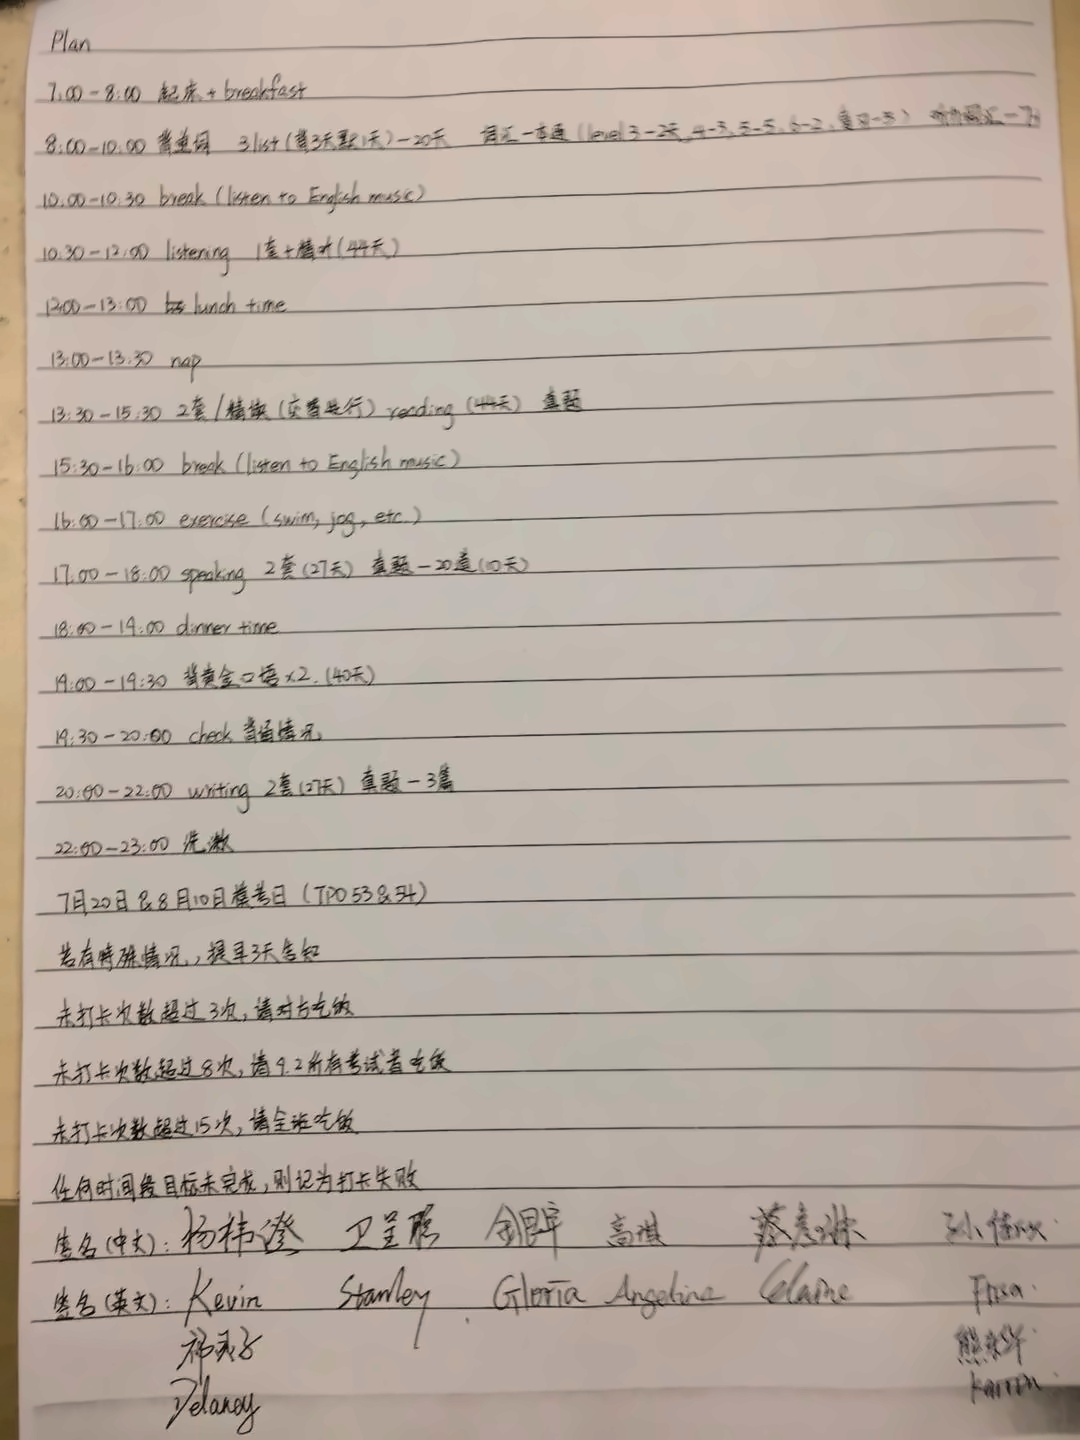 Plan
7:00-8:00 起床 + breakfast
8:00-10:00 背单词 3 list (背3天默1天) - 20天 词汇一本通 (level 3-2天, 4-3, 5-5, 6-2, 复习-3) 听力词汇-7天
10:00-10:30 break (listen to English music)
10:30-12:00 listening 1套+精听(44天)
12:00-13:00 lunch time
13:00-13:30 nap
13:30-15:30 2套/精做 (交替进行) reading (44天) 真题
15:30-16:00 break (listen to English music)
16:00-17:00 exercise (swim, jog, etc.)
17:00-18:00 speaking 2套(27天) 真题-20道(10天)
18:00-19:00 dinner time
19:00-19:30 背黄金口语×2. (40天)
19:30-20:00 check 背诵情况
20:00-22:00 writing 2套(27天) 真题-3篇
22:00-23:00 洗漱
7月20日&8月10日模考日 (TPO 53&54)
若有特殊情况,提早3天告知
未打卡次数超过3次,请对方吃饭
未打卡次数超过8次,请9.2所有考试者吃饭
未打卡次数超过15次,请全班吃饭
任何时间段目标未完成,则记为打卡失败
签名(中文): 杨梼澄 卫呈聪 高淇
签名(英文): Kevin Stanley Gloria Angelina Elaine
Delaney